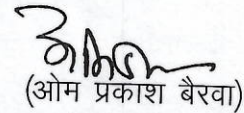 (ओम प्रकाश बैरवा)